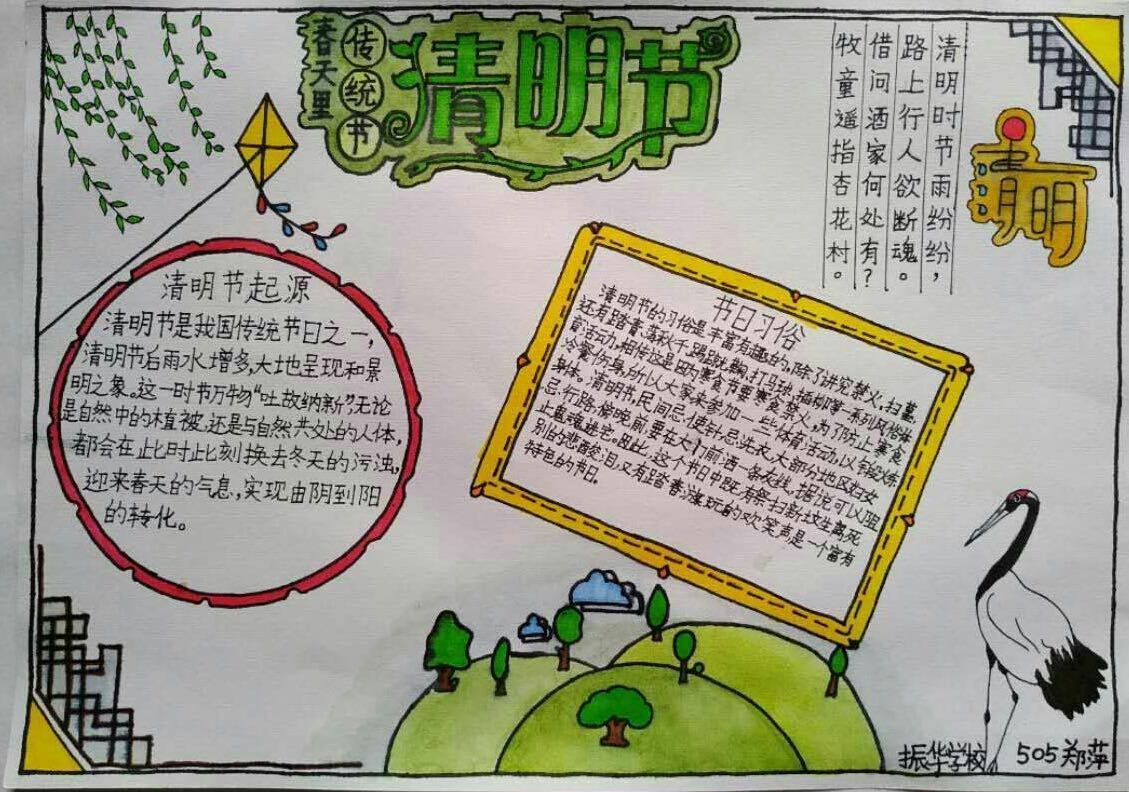 春天里
传统节
清明节
清明时节雨纷纷，
路上行人欲断魂。
借问酒家何处有？
牧童遥指杏花村。
清明
清明节起源
清明节是我国传统节日之一，
清明节后雨水增多，大地呈现和景
明之象。这一时节万物“吐故纳新”，无论
是自然中的植被，还是与自然共处的人体，
都会在此时此刻换去冬天的污浊，
迎来春天的气息，实现由阴到阳
的转化。
节日习俗
清明节的习俗是丰富有趣的，除了讲究禁火、扫墓，
还有踏青、荡秋千、蹴鞠、打马球、插柳等一系列风俗体
育活动。相传这是因为寒食节要寒食禁火，为了防止寒食
冷餐伤身，所以大家来参加一些体育活动，以锻炼
身体。清明节，民间忌使针，忌洗衣，大部分地区妇女
忌行路。傍晚前，要在大门前洒一条灰线，据说可以阻
止鬼魂进宅。因此，这个节日中既有祭扫新坟生离死
别的悲酸泪，又有踏青游玩的欢笑声，是一个富有
特色的节日。
振华学校 505 郑萍